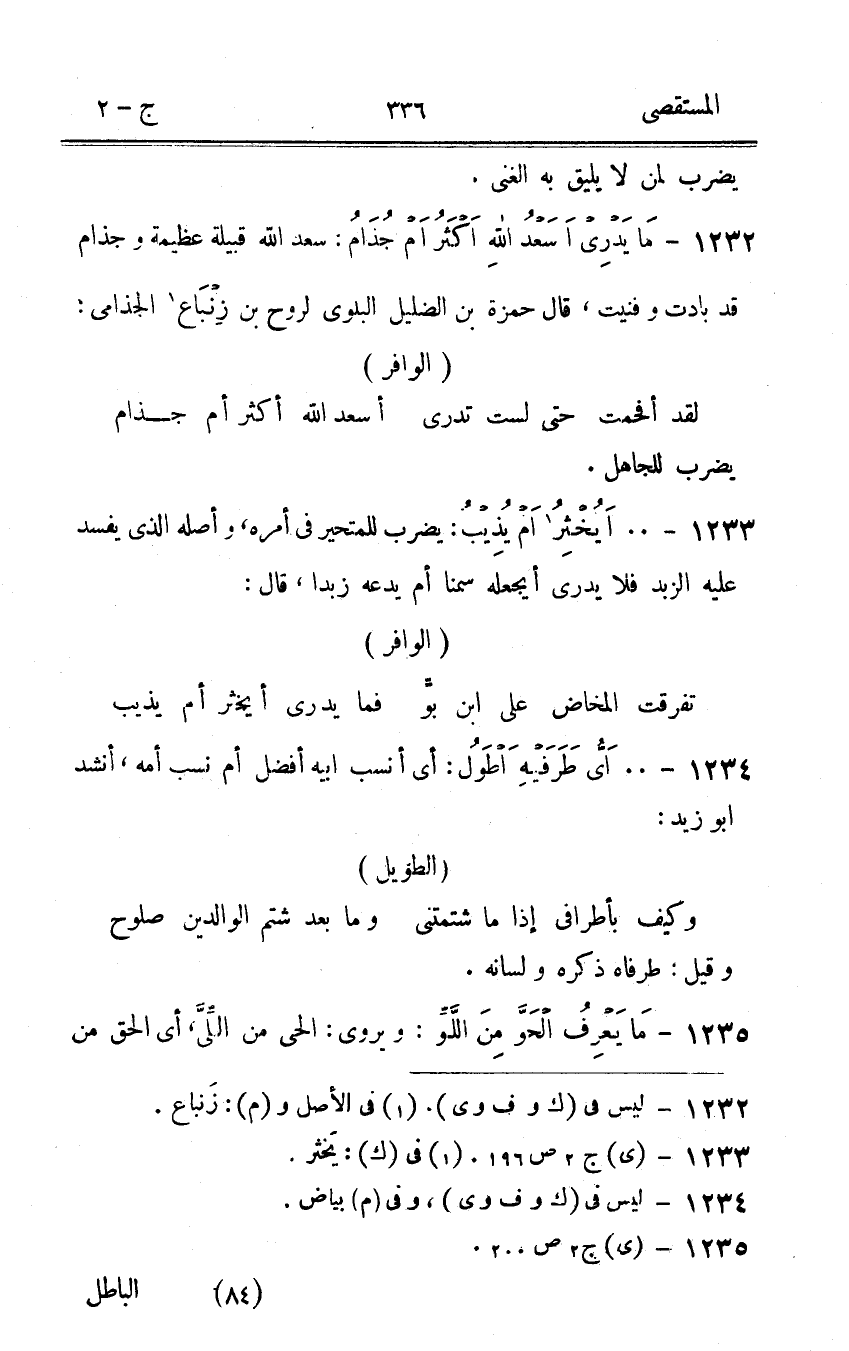 المستقصى ٣٣٦ ج – ٢
يضرب لمن لا يليق به الغنى .
١٢٣٢ – مَا يَدْرِىْ اَ سَعْدُ اللهِ اَكْثَرُ اَمْ جُذَامُ : سعد الله قبيلة عظيمة و جذام
قد بادت و فنيت ، قال حمزة بن الضليل البلوى لروح بن زِنْبَاع ١ الجذامى :
( الوافر )
لقد أفحمت حتى لست تدرى أ سعد الله أكثر أم جـــذام
يضرب للجاهل .
١٢٣٣ – ٠٠ اَ يُخْثِرُ ١ اَمْ يُذِيْبُ : يضرب للمتحير فى أمره، و أصله الذى يفسد
عليه الزبد فلا يدرى أ يجعله سمنا أم يدعه زبدا ، قال :
( الوافر )
تفرقت المخاض على ابن بوٍّ فما يدرى أ يخثر أم يذيب
١٢٣٤ – ٠٠ اَىُّ طَرَفَيْهِ اَطْوَلُ : أى أ نسب ابيه أفضل أم نسب أمه ، أنشد
ابو زيد :
(الطويل )
و كيف بأطرافى إذا ما شتمتنى و ما بعد شتم الوالدين صلوح
و قيل : طرفاه ذكره و لسانه .
١٢٣٥ – مَا يَعْرِفُ الْحَوَّ مِنَ اللَّوِّ : و يروى : الحى من اللِّىِّ، أى الحق من
١٢٣٢ – ليس فى (ك و ف و ى). (١) فى الأصل و (م) : زَنباع .
١٢٣٣ – (ى) ج ٢ ص ١٩٦ . (١) فى (ك) : يَخثر .
١٢٣٤ – ليس فى (ك و ف و ى ) ، و فى (م) بياض .
١٢٣٥ – (ى) ج ٢ ص ٢٠٠ .
(٨٤) الباطل